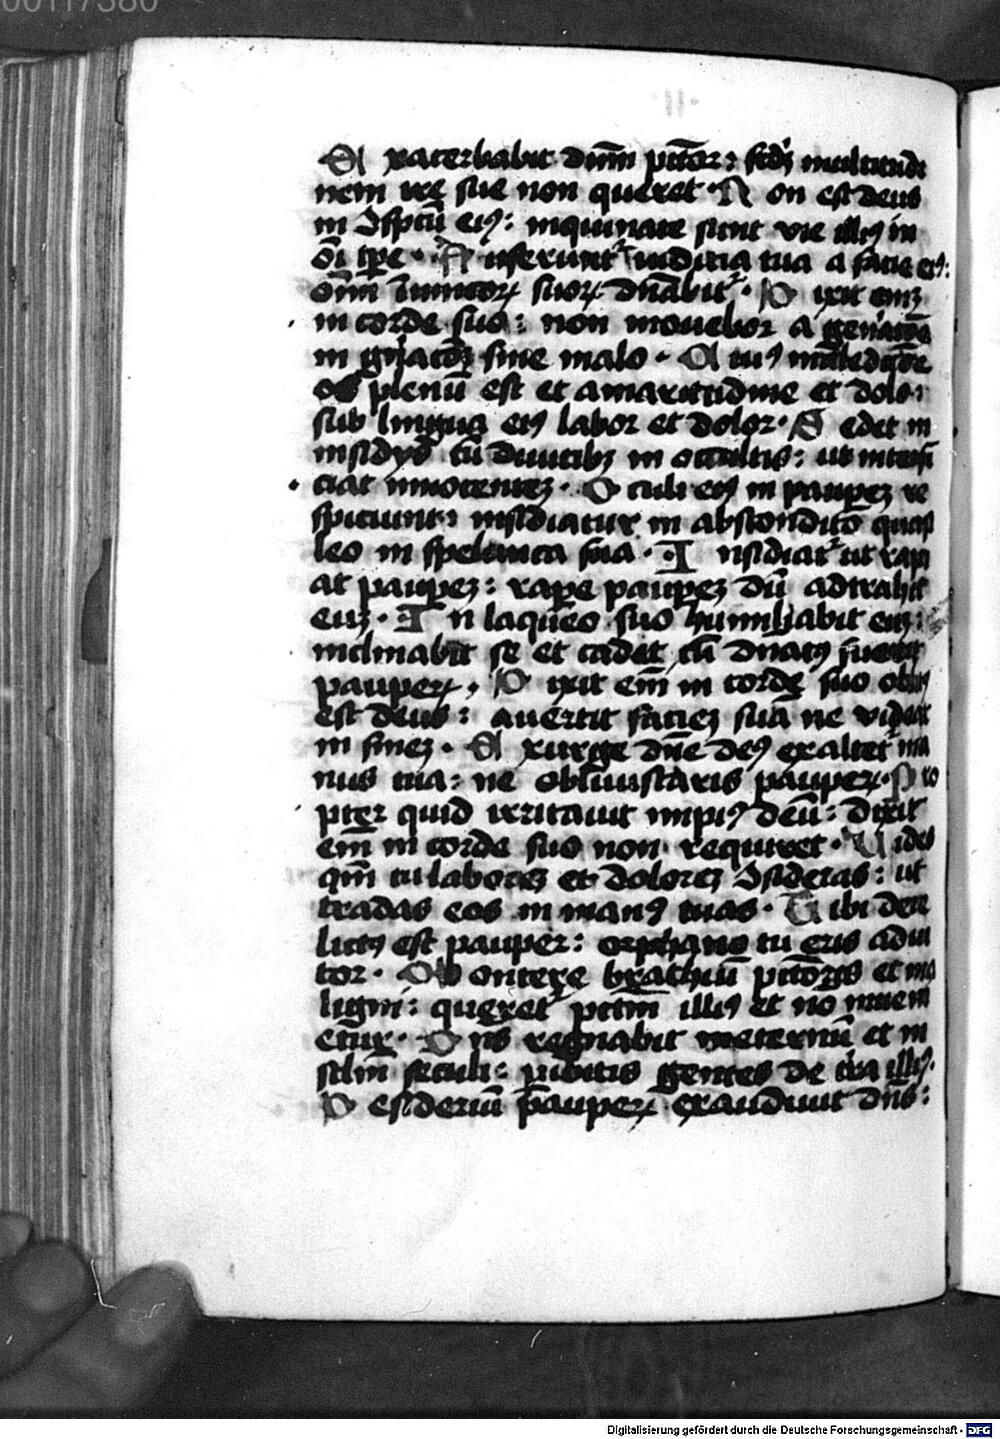 00117380
·II·
Exacerbabit dnm̄ pctōr: scd̄ꝫ multitudi
nem ire sue non queret · Non est deus
in ɔspcū eiꝰ: inquinate sunt vie illiꝰ in
ōi tpe · Auferunt᷑ iudicia tua a facie eiꝰ:
oīm inimicoꝝ suoꝝ dn̄abit᷑ · Dixit eniꝫ
in corde suo: non mouebor a gen̄acōe
in gn̄acōeꝫ sine malo · Cuiꝰ maledicōe
os plenū est et amaritudine et dolo:
sub lingua eiꝰ labor et dolor · Sedet in
insidijs cū diuitibꝫ in occultis: ut interfi
ciat innocenteꝫ · Oculi eiꝰ in paupeꝫ re
spiciunt: insidiatur in abscondito quasi
leo in spelunca sua · Insidiat᷑ ut rapi
at paupeꝫ: rape paupeꝫ dū adtrahit
euꝫ · In laqueo suo humiliabit euꝫ:
inclinabit se et cadet cū dn̄atꝰ fuerit
pauperꝝ · Dixit em̄ in corde suo oblitꝰ
est deus: auertit facieꝫ suā ne videat
in fineꝫ · Exurge dn̄e deꝰ exaltet᷑ ma
nus tua: ne obliuiscaris pauperꝝ · Pro
pter quid irritauit impiꝰ deū: dixit
em̄ in corde suo non requiret · Vides
qm̄ tu laboreꝫ et doloreꝫ ɔsideras: ut
tradas eos in manꝰ tuas · Tibi dere
lictꝰ est pauper: orphano tu eris adiu
tor · Contere brachiū pctōris et ma
ligni: queret᷑ pctm̄ illiꝰ et nō inueni
etur · Dn̄s regnabit ineternū et in
sclm̄ seculi: pibitis gentes de tr̄a illiꝰ.
Desideriū pauperꝝ exaudiuit dn̄s:
Digitalisierung gefördert durch die Deutsche Forschungsgemeinschaft - DFG